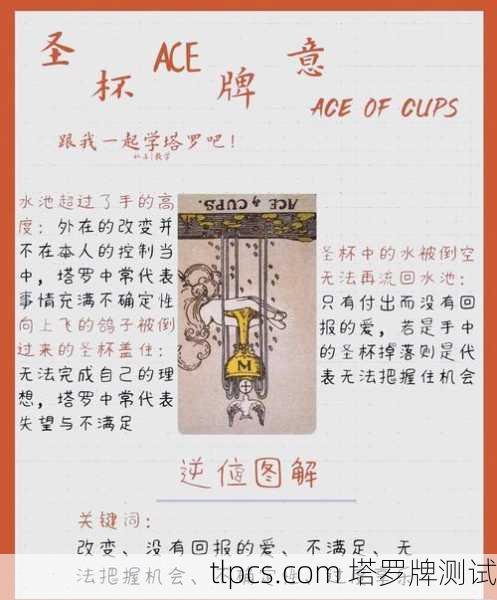 圣杯 ACE 牌意
ACE OF CUPS
跟我一起学塔罗吧！
水池超过了手的高
度：外在的改变并
不在本人的控制当
中，塔罗中常代表
事情充满不确定性
向上飞的鸽子被倒
过来的圣杯盖住：
无法完成自己的理
想，塔罗中常代表
失望与不满足
ACE of CUPS.
M
圣杯中的水被倒空
无法再流回水池：
只有付出而没有回
报的爱，若是手中
的圣杯掉落则是代
表无法把握住机会
逆位图解
关键词：
改变、没有回报的爱、不满足、无
法把握机会、
tlpcs.com 塔罗牌测试